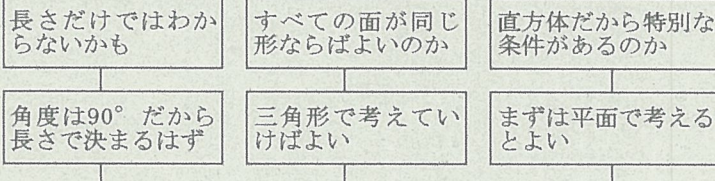 長さだけではわか
らないかも
すべての面が同じ
形ならばよいのか
直方体だから特別な
条件があるのか
角度は90°だから
長さで決まるはず
三角形で考えてい
けばよい
まずは平面で考える
とよい